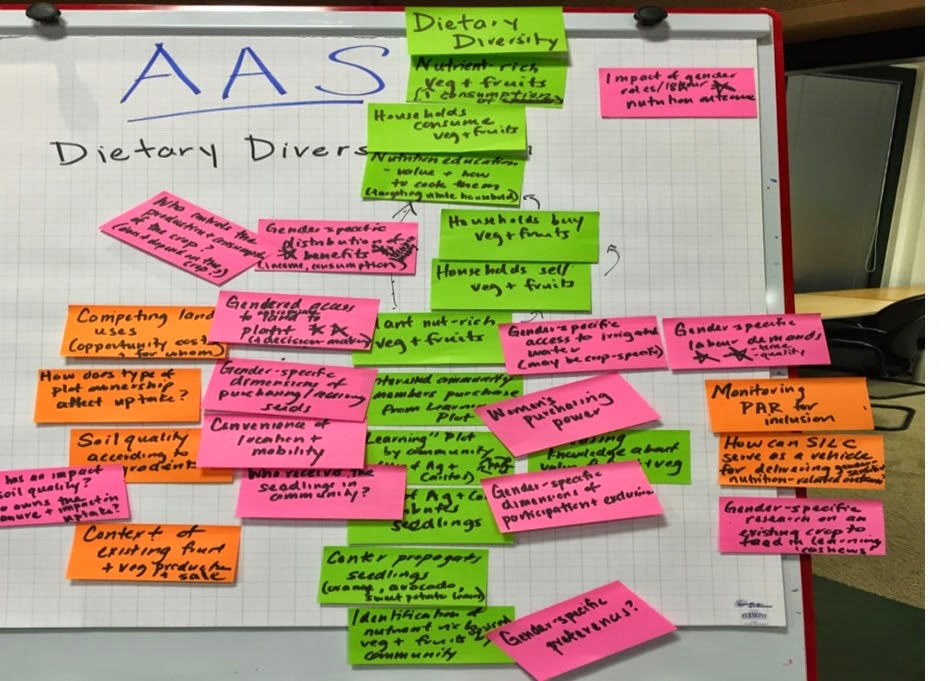 AAS
Dietary Divers
Dietary
Diversity
Nutrient-rich
veg + fruits
Households
consume
veg + fruits
Nutrition education
- value + how
to cook them
(targeting whole household)
Impact of gender
roles/labour
nutrition outcome
Who controls the
production + consumption
of the crop?
Gender-specific
distribution of
benefits
(income, consumption)
Households buy
veg + fruits
Households sell
veg + fruits
Competing land
uses
(opportunity cost
+ for whom)
Gendered access
to land to
plant
+ decision-making
lant nut-rich
veg + fruits
Gender-specific
access to irrigated
water
(may be crop-specific)
Gender-specific
labour demands
- time
- quality
How does type of
plot ownership
affect uptake?
Gender-specific
dimensions of
purchasing/
seeds
nterested community
members purchase
from Learning
Plot
Woman's
purchasing
power
Monitoring
PAR for
inclusion
Soil quality
according to
gradient
Convenience of
location +
mobility
Learning" Plot
by community
of Ag +
knowledge about
veg
How can SILC
serve as a vehicle
for delivering gender-sensitive
nutrition-related
has an impact
soil quality?
o owns the
+ impact on
uptake?
Who receives the
seedlings in
community?
f Ag + Co
seedlings
Gender-specific
dimensions of
participation + exclusion
Gender-specific
research on an
existing crop to
feed in learning
(cashews)
Context of
existing fruit
+ veg production
+ sale
Center propogates
seedlings
(orange, avocado,
sweet potato
Identification of
nutrient rich
veg + fruits
community
Gender-specific
preferences?
VERMONT